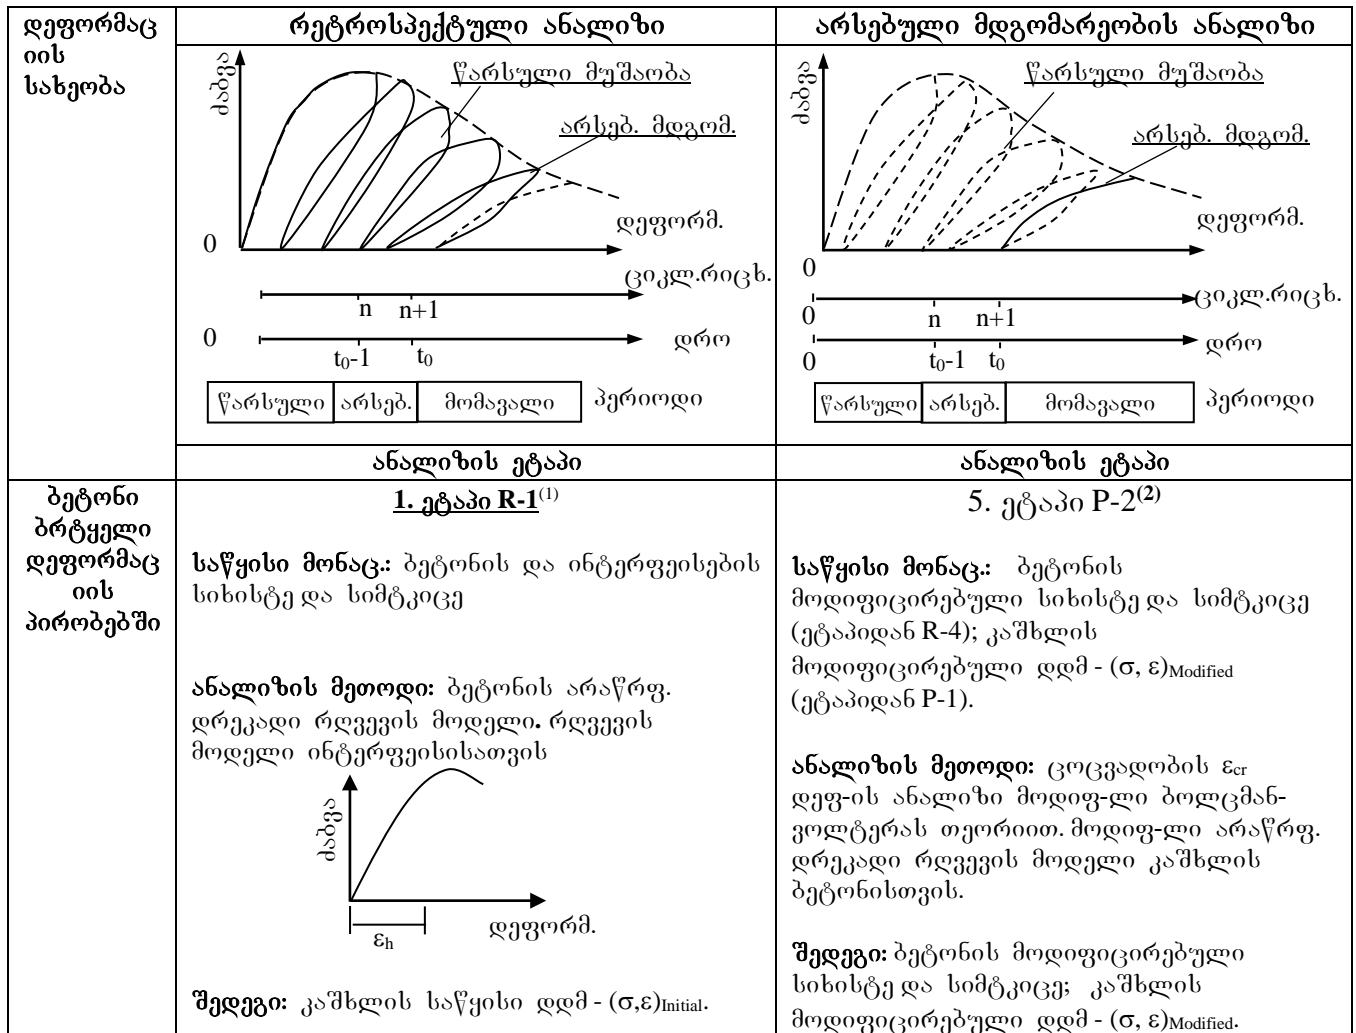 დეფორმაც
იის
სახეობა
რეტროსპექტული ანალიზი
ძაბვა
წარსული მუშაობა
არსებ. მდგომ.
დეფორმ.
0
ციკლ.რიცხ.
n n+1
0
დრო
t₀-1 t₀
წარსული არსებ. მომავალი პერიოდი
არსებული მდგომარეობის ანალიზი
ძაბვა
წარსული მუშაობა
არსებ. მდგომ.
დეფორმ.
0
ციკლ.რიცხ.
0
n n+1
დრო
0
t₀-1 t₀
წარსული არსებ. მომავალი პერიოდი
ანალიზის ეტაპი
ანალიზის ეტაპი
ბეტონი
ბრტყელი
დეფორმაც
იის
პირობებში
1. ეტაპი R-1⁽¹⁾
საწყისი მონაც.: ბეტონის და ინტერფეისების
სიხისტე და სიმტკიცე
ანალიზის მეთოდი: ბეტონის არაწრფ.
დრეკადი რღვევის მოდელი. რღვევის
მოდელი ინტერფეისისათვის
ძაბვა
დეფორმ.
εh
შედეგი: კაშხლის საწყისი დდმ - (σ,ε)Initial.
5. ეტაპი P-2⁽²⁾
საწყისი მონაც.: ბეტონის
მოდიფიცირებული სიხისტე და სიმტკიცე
(ეტაპიდან R-4); კაშხლის
მოდიფიცირებული დდმ - (σ, ε)Modified
(ეტაპიდან P-1).
ანალიზის მეთოდი: ცოცვადობის εcr
დეფ-ის ანალიზი მოდიფ-ლი ბოლცმან-
ვოლტერას თეორიით. მოდიფ-ლი არაწრფ.
დრეკადი რღვევის მოდელი კაშხლის
ბეტონისთვის.
შედეგი: ბეტონის მოდიფიცირებული
სიხისტე და სიმტკიცე; კაშხლის
მოდიფიცირებული დდმ - (σ, ε)Modified.